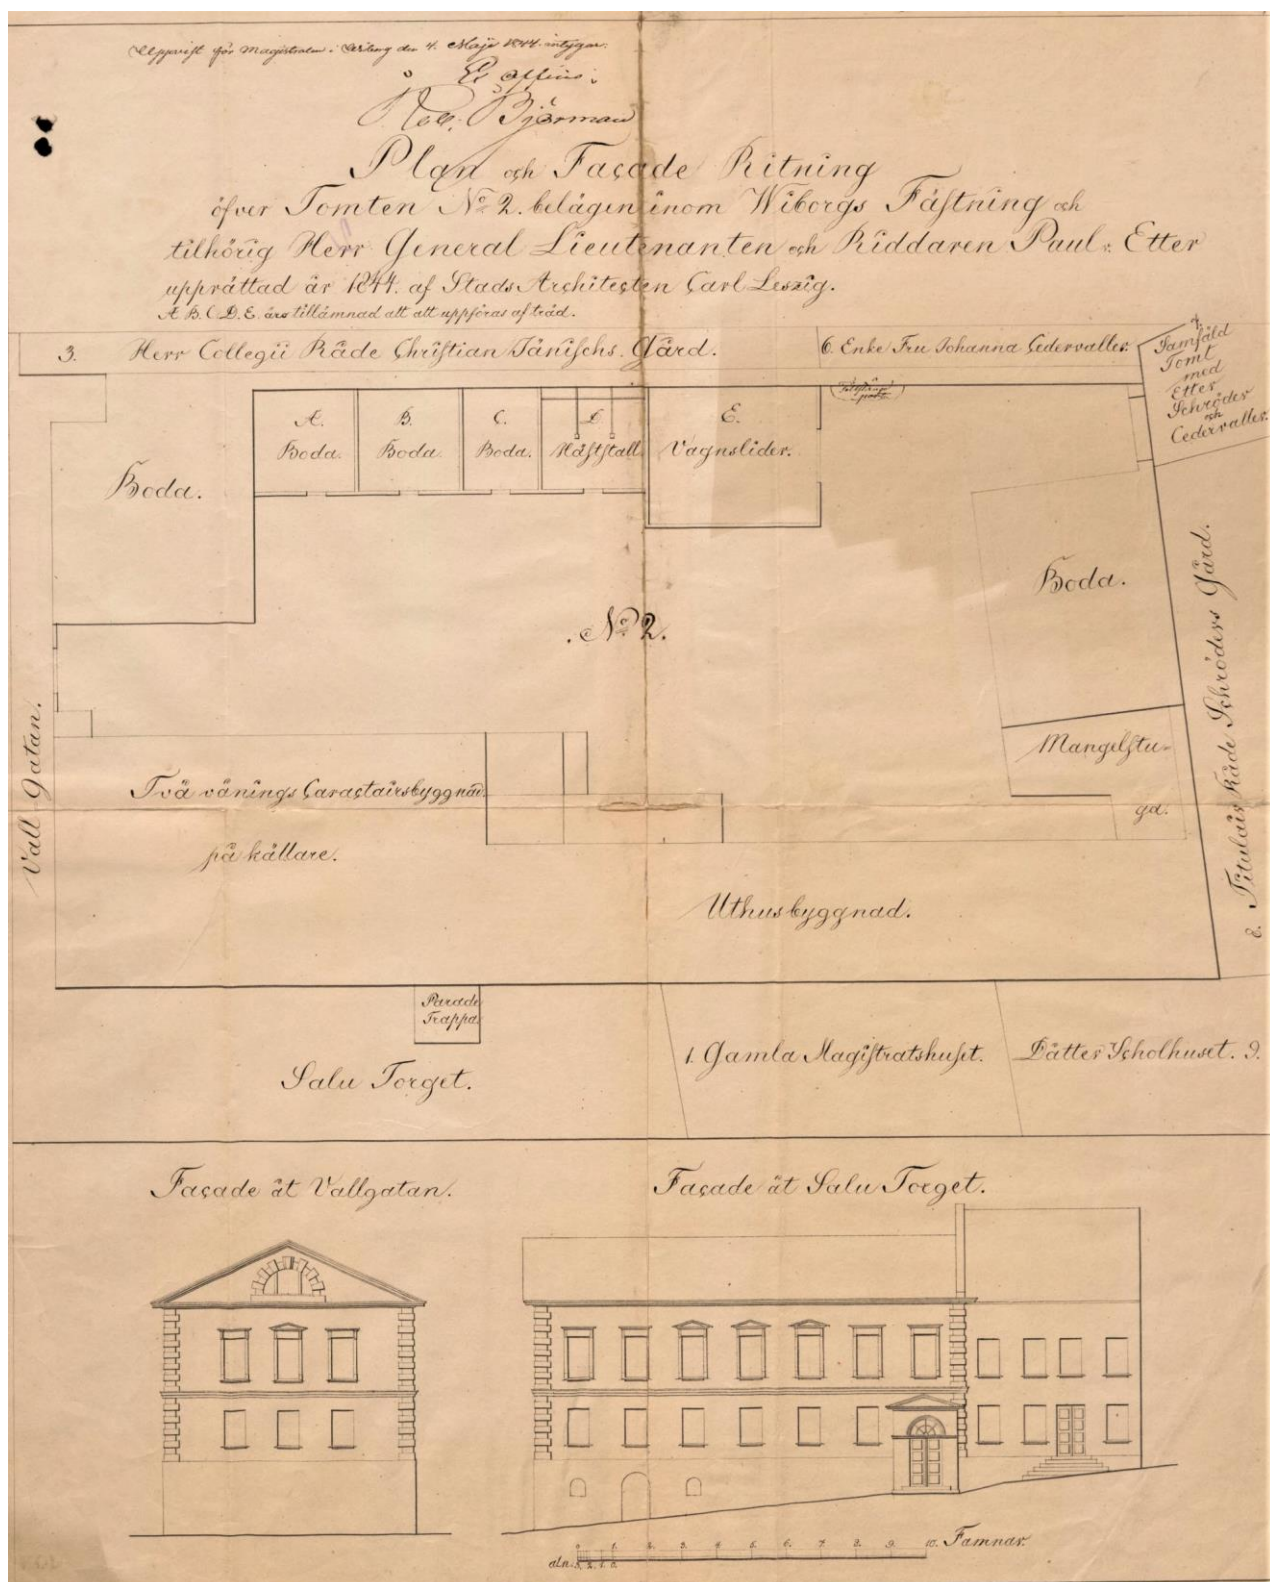 för Magistraten i Wiborg den 4. Maji 1844. intygar.
Ex officio.
Björman
Plan och Façade Ritning
öfver Tomten No 2. belägen inom Wiborgs Fästning och
tilhörig Herr General Lieutenanten och Riddaren Paul v. Etter
upprättad år 1844. af Stads Architecten Carl Leszig.
A. B. C. D. E. äro tillämnad att att uppföras af träd.
3. Herr Collegii Råde Christian Jänischs. Gård.
6. Enke Fru Johanna Cedervaller.
4.
Samfäld
Tomt
med
Etter
Schröder
och
Cedervaller.
A.
Boda.
B.
Boda.
C.
Boda.
D.
Häststall
E.
Vagnslider.
Boda.
Boda.
No 2.
Vall Gatan.
Mangelstu-
ga.
8. Titulair Råde Schröders Gård.
Två vånings Caractairsbyggnad
på källare.
Uthusbyggnad.
Parade
Trappa.
Salu Torget.
1. Gamla Magistratshuset.
Dätter Scholhuset. 9.
Façade åt Vallgatan.
Façade åt Salu Torget.
aln. 3. 2. 1. 0. 1. 2. 3. 4. 5. 6. 7. 8. 9. 10. Famnar.